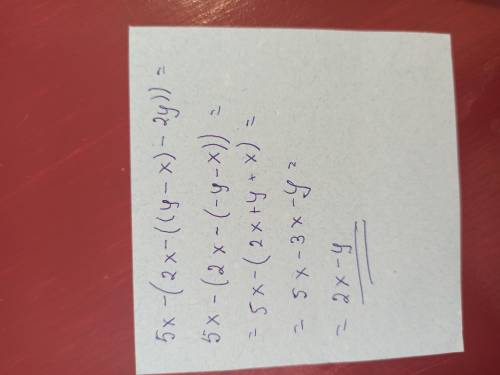 5x-(2x-((y-x)-2y))=
5x-(2x-(-y-x))=
=5x-(2x+y+x)=
=5x-3x-y=
=2x-y